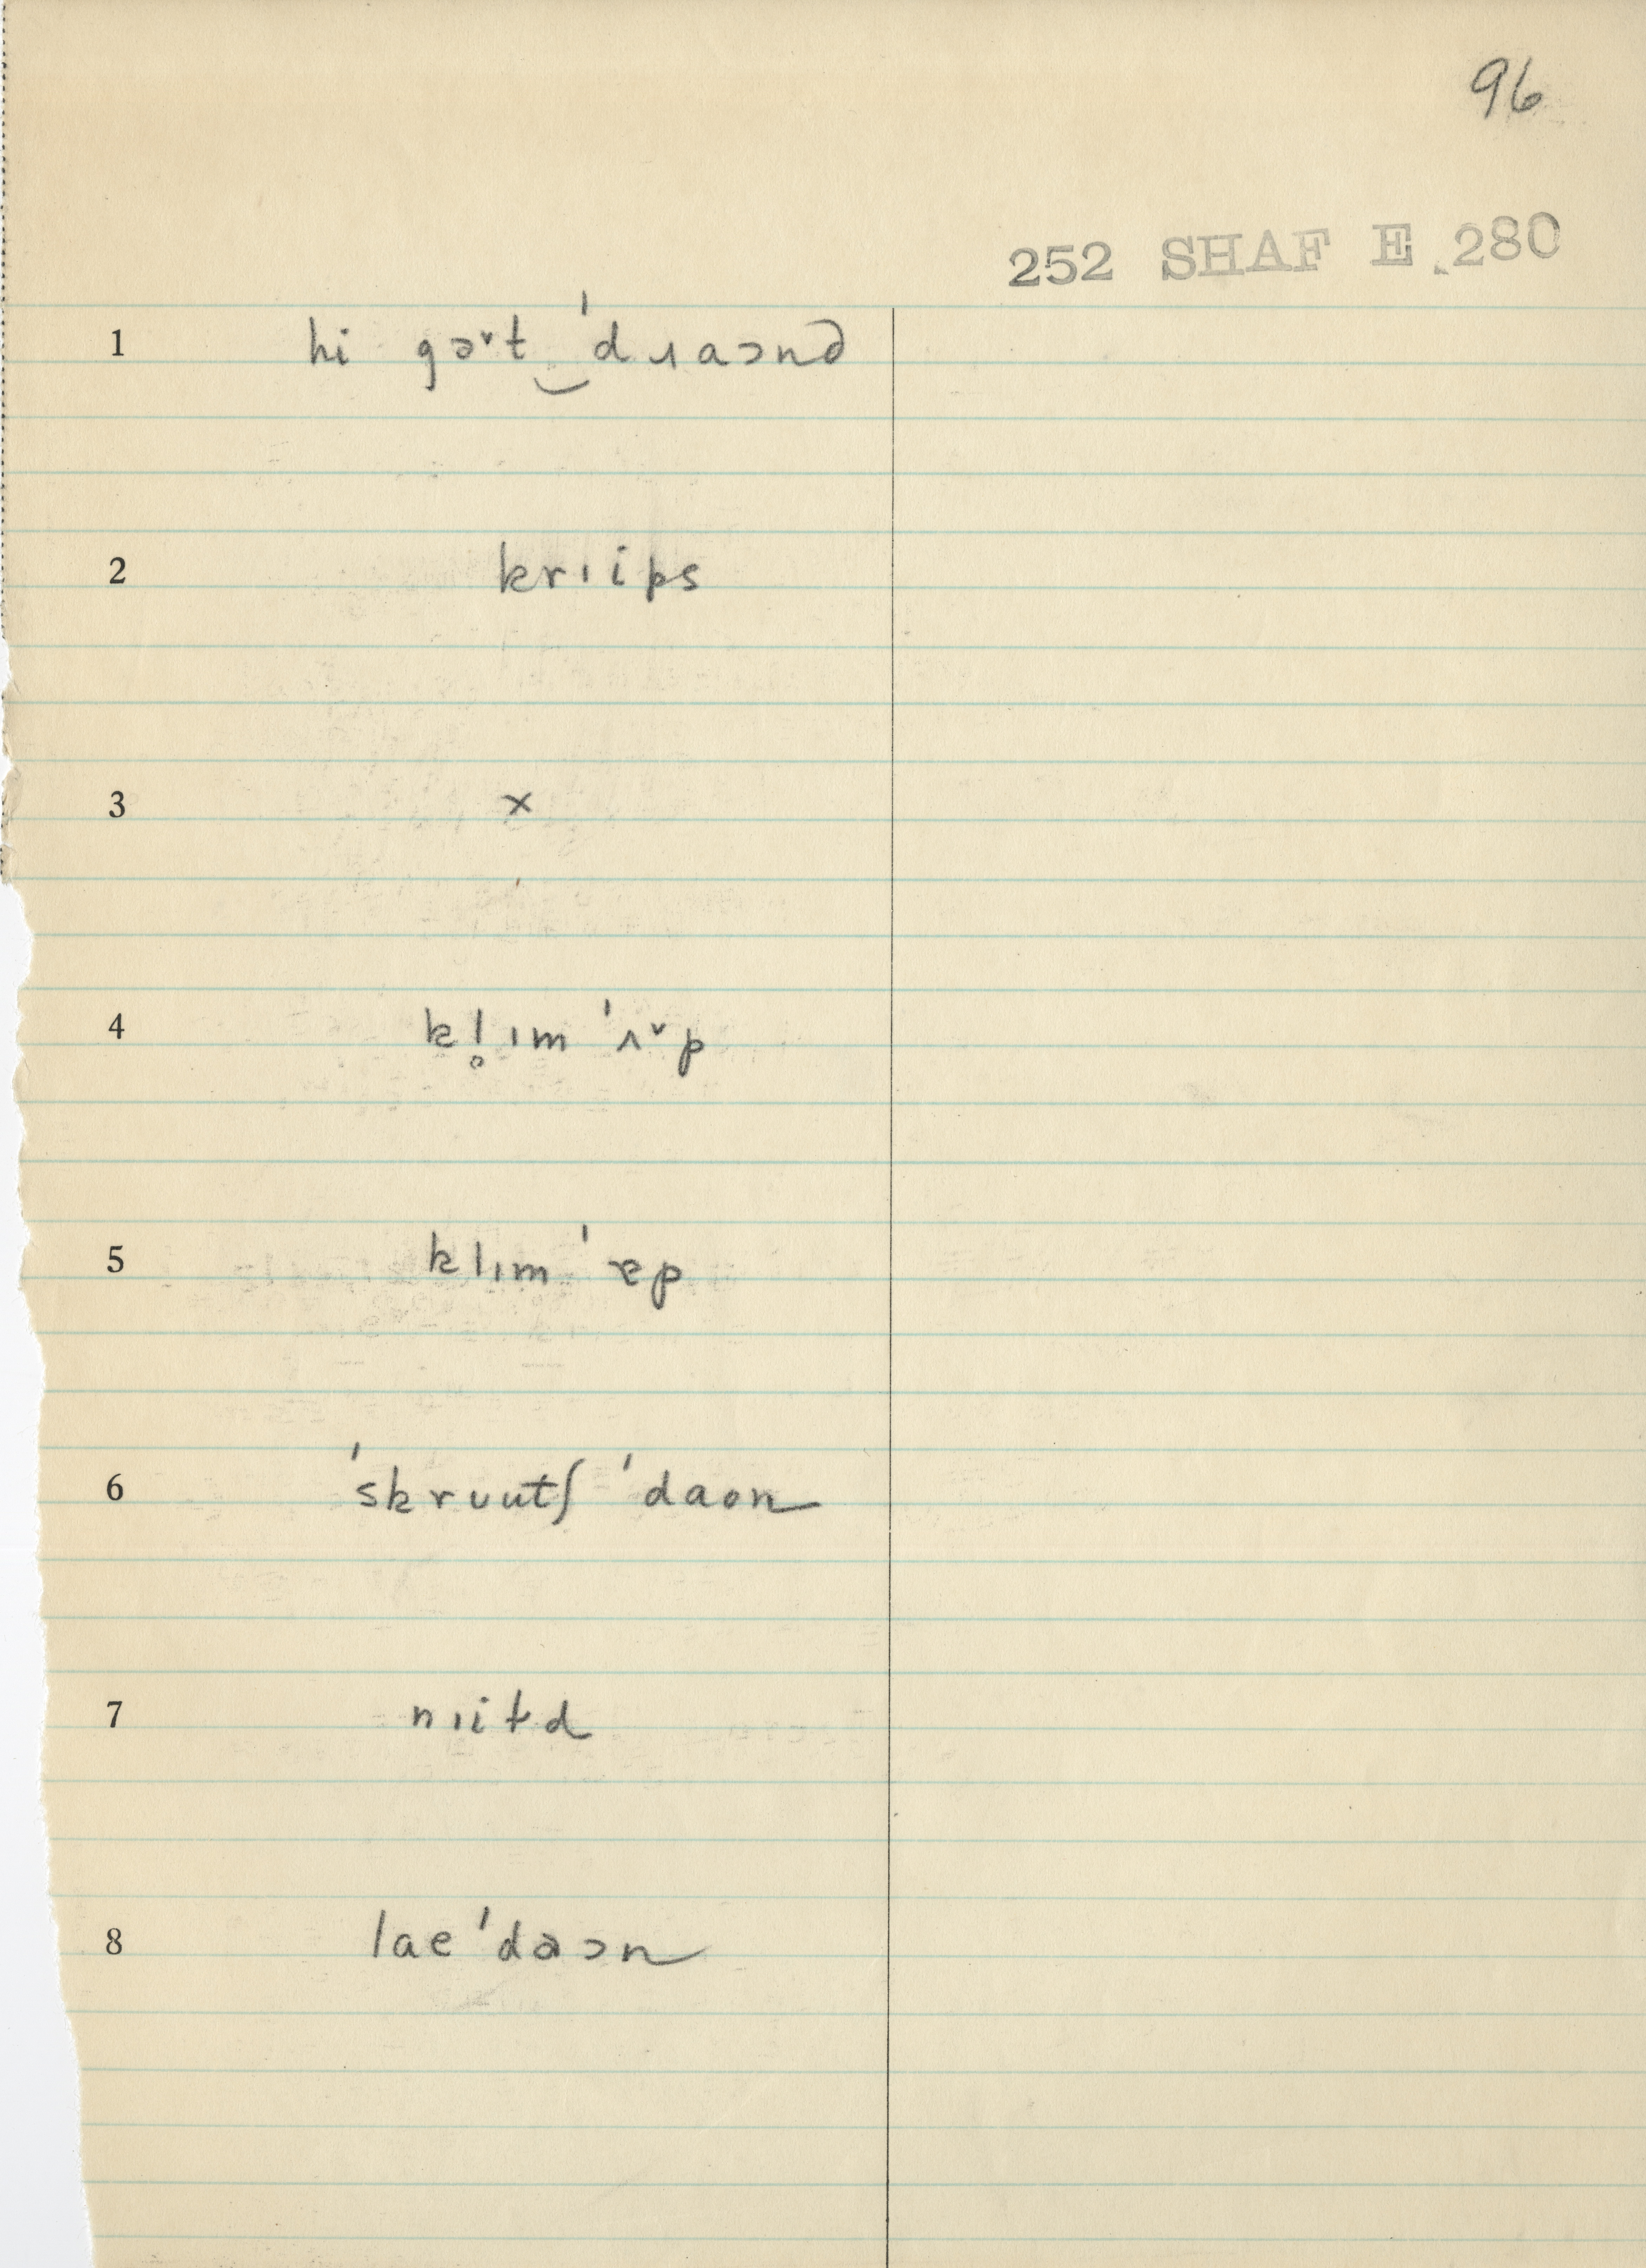 96
252 SHAF E 280
1 hi gə˅t‿ˈdɹaɔnd
2 krɪips
3 x
4 kl̥ɪm ˈʌ˅p
5 klɪm ˈɐp
6 ˈskrᴜutʃ ˈdaon
7 nɪitd
8 laeˈdaɔn